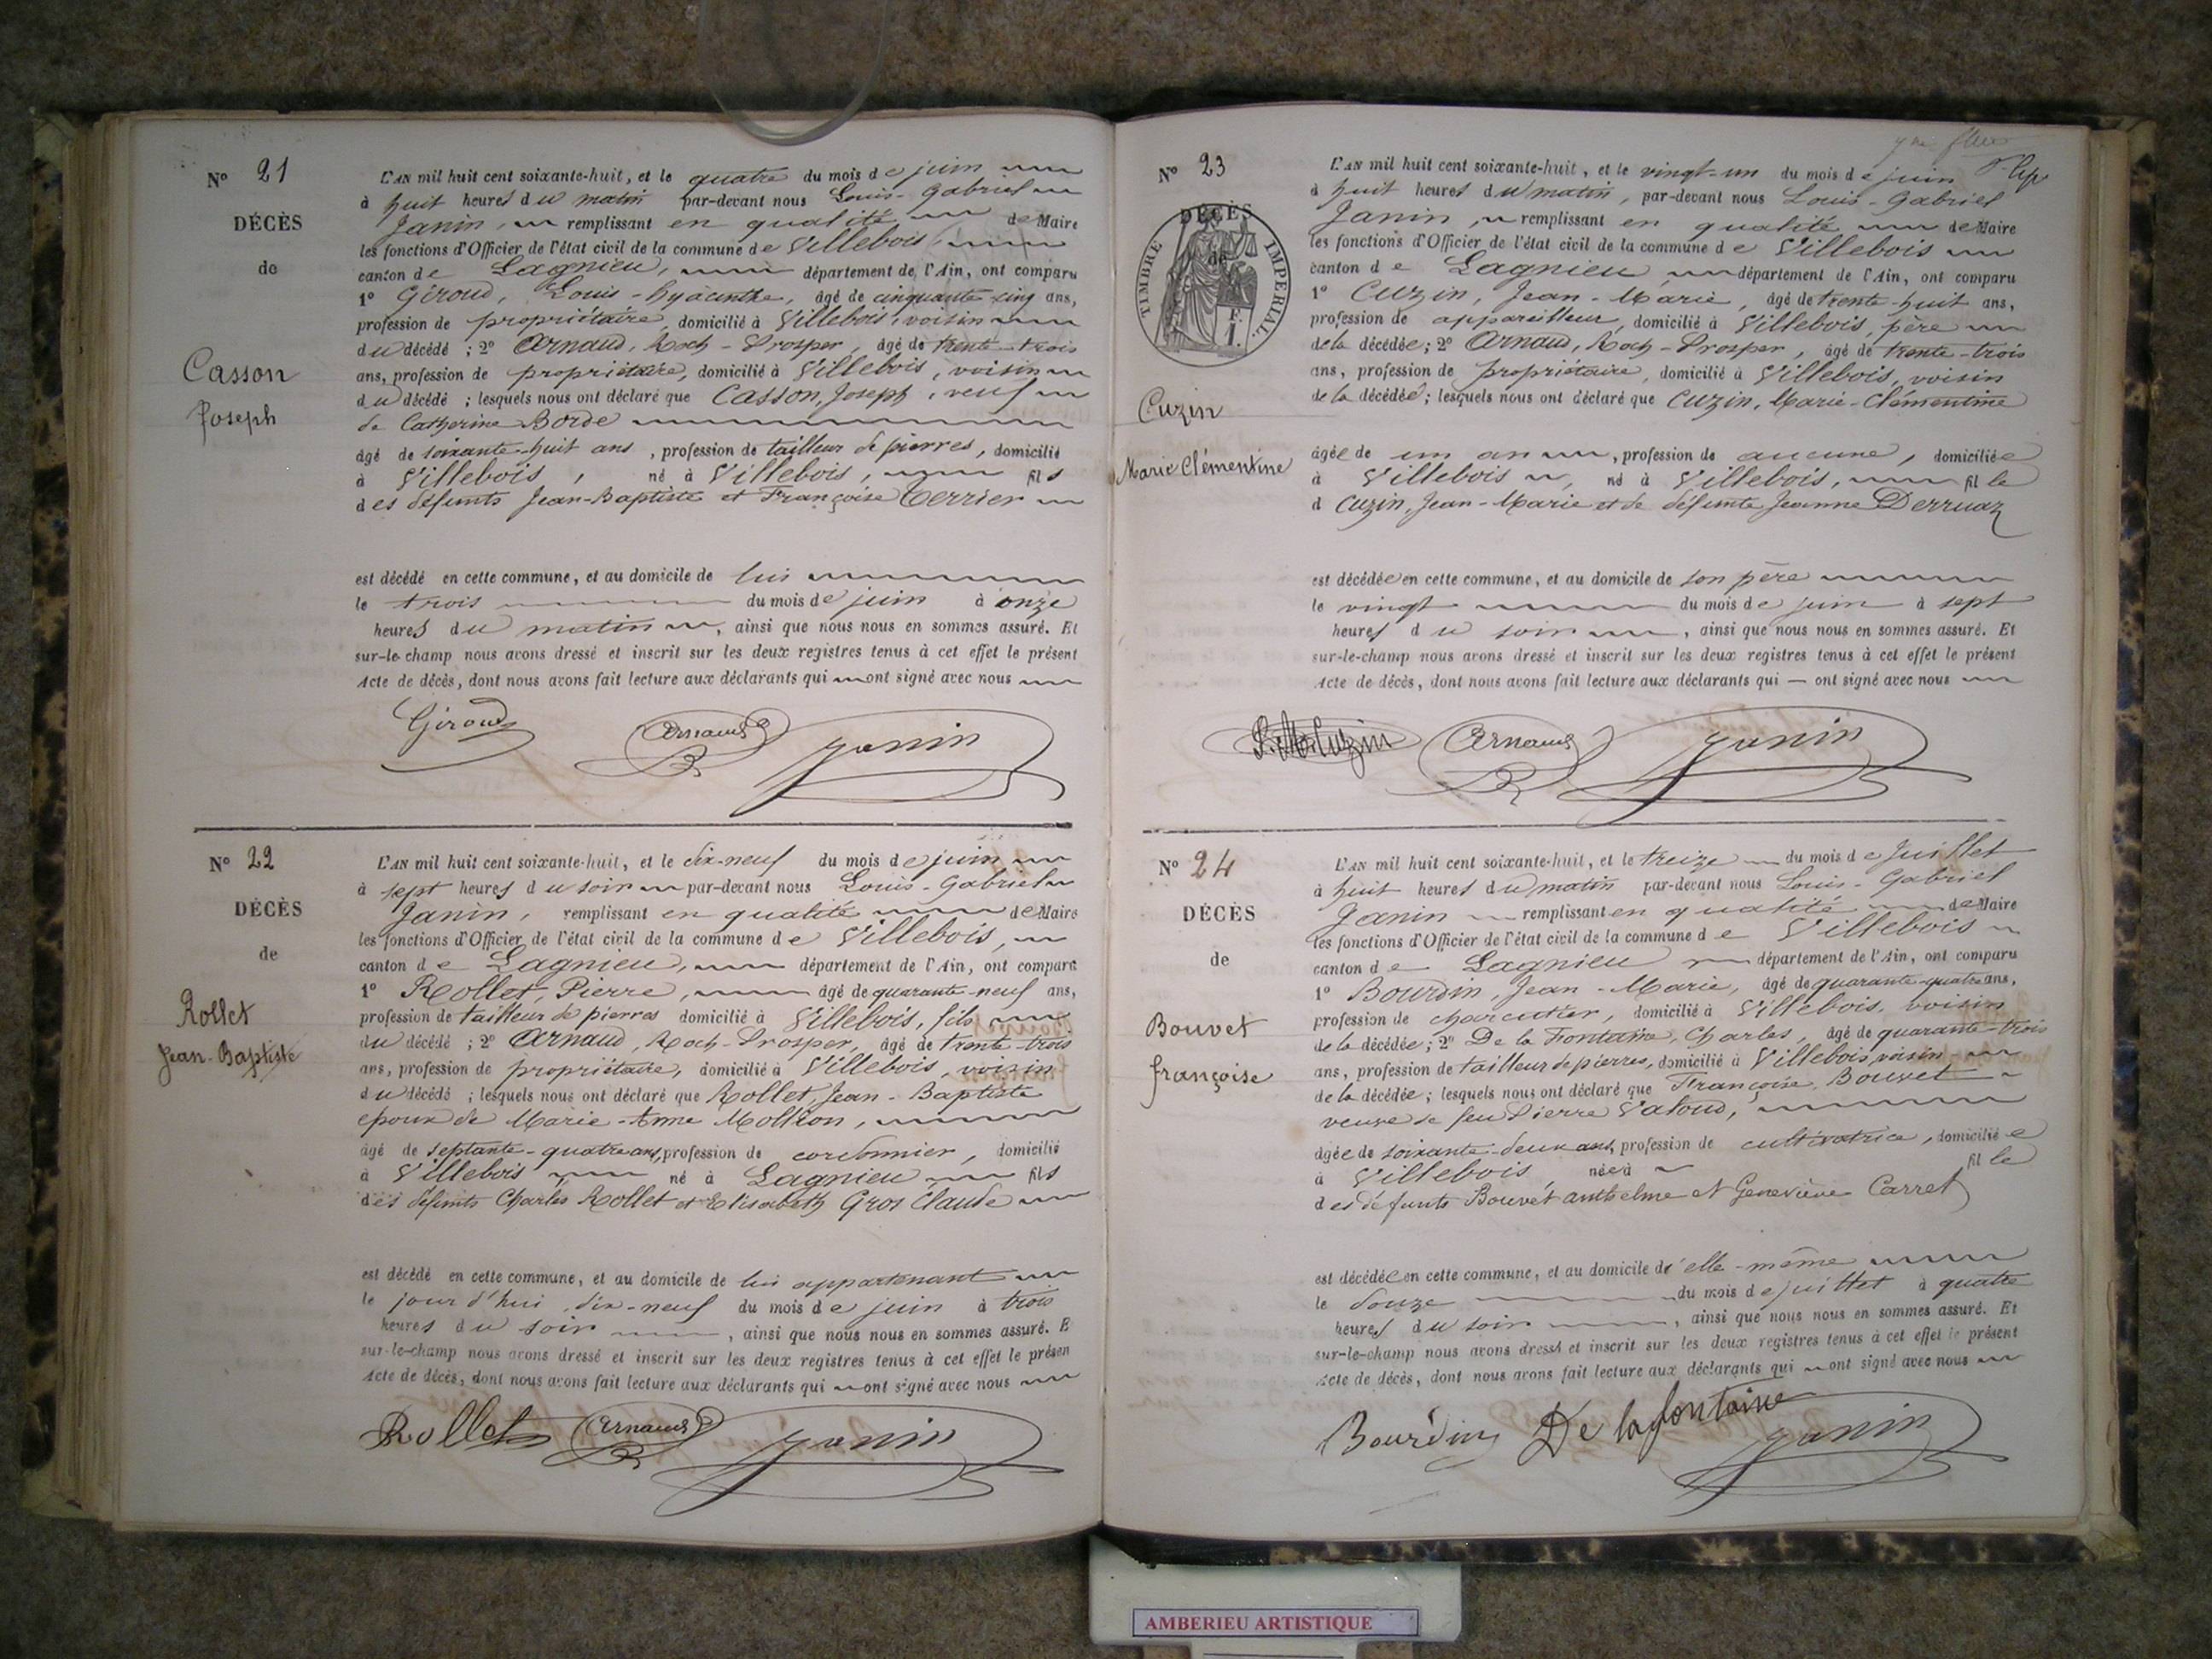 N° 21
DÉCÈS
de
Casson
Joseph
L'AN mil huit cent soixante-huit, et le quatre du mois de juin
à huit heures du matin par-devant nous Louis-Gabriel
Janin, remplissant en qualité de Maire
les fonctions d'Officier de l'état civil de la commune de Villebois,
canton de Lagnieu, département de l'Ain, ont comparu
1° Giroud, Louis-hyacinthe, âgé de cinquante-cinq ans,
profession de propriétaire, domicilié à Villebois, voisin
du décédé ; 2° Arnaud, Roch-Prosper, âgé de trente-trois
ans, profession de propriétaire, domicilié à Villebois, voisin
du décédé ; lesquels nous ont déclaré que Casson, Joseph, veuf
de Catherine Borde
âgé de soixante-huit ans, profession de tailleur de pierres, domicilié
à Villebois, né à Villebois, fils
des défunts Jean-Baptiste et Françoise Terrier
est décédé en cette commune, et au domicile de lui
le trois du mois de juin à onze
heures du matin, ainsi que nous nous en sommes assuré. Et
sur-le-champ nous avons dressé et inscrit sur les deux registres tenus à cet effet le présent
Acte de décès, dont nous avons fait lecture aux déclarants qui ont signé avec nous
Giroud Arnaud Janin
N° 22
DÉCÈS
de
Rollet
Jean-Baptiste
L'AN mil huit cent soixante-huit, et le dix-neuf du mois de juin
à sept heures du soir par-devant nous Louis-Gabriel
Janin, remplissant en qualité de Maire
les fonctions d'Officier de l'état civil de la commune de Villebois,
canton de Lagnieu, département de l'Ain, ont comparu
1° Rollet, Pierre, âgé de quarante-neuf ans,
profession de tailleur de pierres domicilié à Villebois, fils
du décédé ; 2° Arnaud, Roch-Prosper, âgé de trente-trois
ans, profession de propriétaire, domicilié à Villebois, voisin
du décédé ; lesquels nous ont déclaré que Rollet, Jean-Baptiste
époux de Marie-Anne Mollion,
âgé de septante-quatre ans, profession de cordonnier, domicilié
à Villebois né à Lagnieu fils
des défunts Charles Rollet et Elisabeth Gros Claude
est décédé en cette commune, et au domicile de lui appartenant
le jour d'hui, dix-neuf du mois de juin à trois
heures du soir, ainsi que nous nous en sommes assuré. E
sur-le-champ nous avons dressé et inscrit sur les deux registres tenus à cet effet le présen
Acte de décès, dont nous avons fait lecture aux déclarants qui ont signé avec nous
Rollet Arnaud Janin
N° 23
DÉCÈS
de
TIMBRE IMPERIAL
Cuzin
Marie Clémentine
L'AN mil huit cent soixante-huit, et le vingt-un du mois de juin
à huit heures du matin, par-devant nous Louis-Gabriel
Janin, remplissant en qualité de Maire
les fonctions d'Officier de l'état civil de la commune de Villebois
canton de Lagnieu département de l'Ain, ont comparu
1° Cuzin, Jean-Marie, âgé de trente-huit ans,
profession de appareilleur, domicilié à Villebois, père
de la décédée ; 2° Arnaud, Roch-Prosper, âgé de trente-trois
ans, profession de propriétaire, domicilié à Villebois, voisin
de la décédée ; lesquels nous ont déclaré que Cuzin, Marie-Clémentine
âgée de un an, profession de aucune, domiciliée
à Villebois, né à Villebois, fille
d Cuzin, Jean-Marie et de défunte Jeanne Derruaz
est décédée en cette commune, et au domicile de son père
le vingt du mois de juin à sept
heures du soir, ainsi que nous nous en sommes assuré. Et
sur-le-champ nous avons dressé et inscrit sur les deux registres tenus à cet effet le présent
Acte de décès, dont nous avons fait lecture aux déclarants qui — ont signé avec nous
J. M. Cuzin Arnaud Janin
N° 24
DÉCÈS
de
Bouvet
françoise
L'AN mil huit cent soixante-huit, et le treize du mois de Juillet
à huit heures du matin par-devant nous Louis-Gabriel
Janin remplissant en qualité de Maire
les fonctions d'Officier de l'état civil de la commune de Villebois
canton de Lagnieu département de l'Ain, ont comparu
1° Bourdin, Jean-Marie, âgé de quarante-quatre ans,
profession de charcutier, domicilié à Villebois, voisin
de la décédée ; 2° De la Fontaine, Charles, âgé de quarante-trois
ans, profession de tailleur de pierres, domicilié à Villebois voisin
de la décédée ; lesquels nous ont déclaré que Françoise, Bouvet
veuve de feu Pierre Vatoud,
âgée de soixante-deux ans, profession de cultivatrice, domiciliée
à Villebois née à fille
des défunts Bouvet anthelme et Geneviève Carret
est décédée en cette commune, et au domicile d'elle-même
le douze du mois de juillet à quatre
heures du soir, ainsi que nous nous en sommes assuré. Et
sur-le-champ nous avons dressé et inscrit sur les deux registres tenus à cet effet le présent
Acte de décès, dont nous avons fait lecture aux déclarants qui ont signé avec nous
Bourdin De lafontaine Janin
AMBERIEU ARTISTIQUE